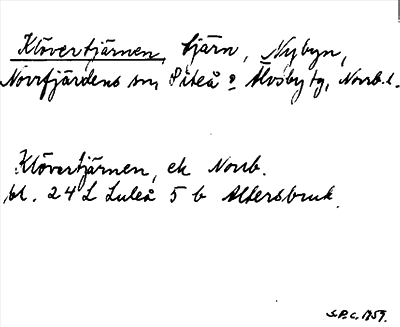 Klövertjärnen, tjärn, Nybyn,
Norrfjärdens sn, Piteå o Älvsby tg, Norrb. l.
Klövertjärnen, ek Norrb.
bl. 24 L Luleå 5 b Altersbruk.
S.P.C. 1959.